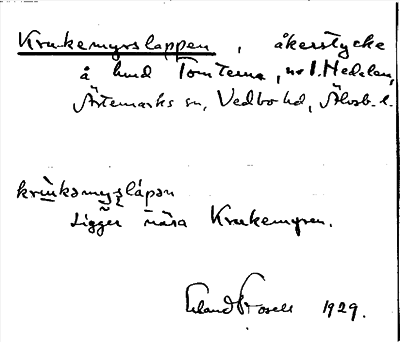 Krukemyrslappen, åkerstycke
å hmd Tomterna, nr 1. Hedalen,
Ärtemarks sn, Vedbo hd, Älvsb. l.
krukəmyslápən
Ligger nära Krukemyren.
Erland Rosell 1929.